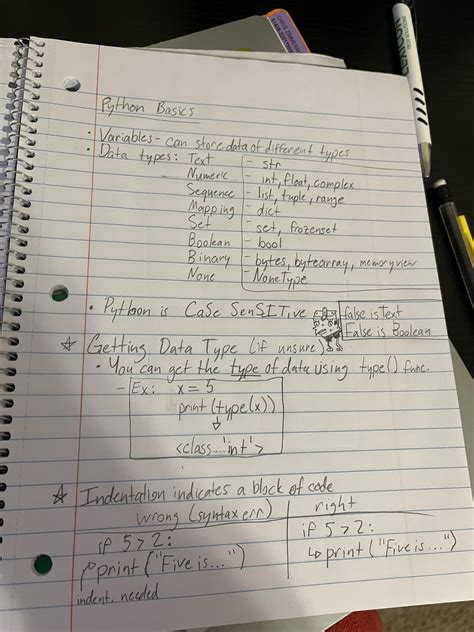 Python Basics
• Variables - can store data of different types
• Data types: Text - str
Numeric - int, float, complex
Sequence - list, tuple, range
Mapping - dict
Set - set, frozenset
Boolean - bool
Binary - bytes, bytearray, memoryview
None - NoneType
• Python is CaSe SenSITive
false is Text
False is Boolean
☆ Getting Data Type (if unsure)
• You can get the type of data using type() func.
- Ex: x = 5
print(type(x))
↓
<class 'int'>
☆ Indentation indicates a block of code
wrong (syntax err) right
if 5 > 2: if 5 > 2:
print("Five is...") ↳ print("Five is...")
indent. needed